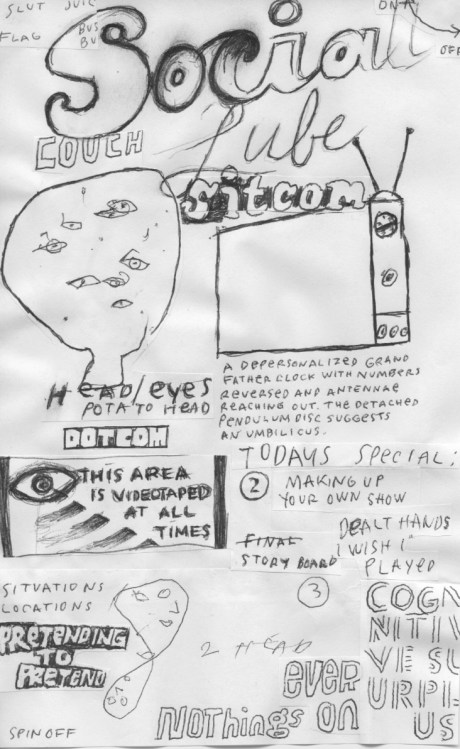 SLUT JUIC
FLAG BUS
BU
DNA
OFF
Social
COUCH
Lube
sitcom
HEAD/eyes
POTATO HEAD
DOTCOM
A DEPERSONALIZED GRAND
FATHER CLOCK WITH NUMBERS
REVERSED AND ANTENNAE
REACHING OUT. THE DETACHED
PENDULUM DISC SUGGESTS
AN UMBILICUS.
THIS AREA
IS VIDEOTAPED
AT ALL
TIMES
TODAYS SPECIAL:
2 MAKING UP
YOUR OWN SHOW
DEALT HANDS
I WISH I
PLAYED
FINAL
STORY BOARD
SITUATIONS
LOCATIONS
3
PRETENDING
TO
PRETEND
2 HEAD
COGN
NITIV
VE SU
URPL
US
EVER
NOTHINGS ON
SPINOFF